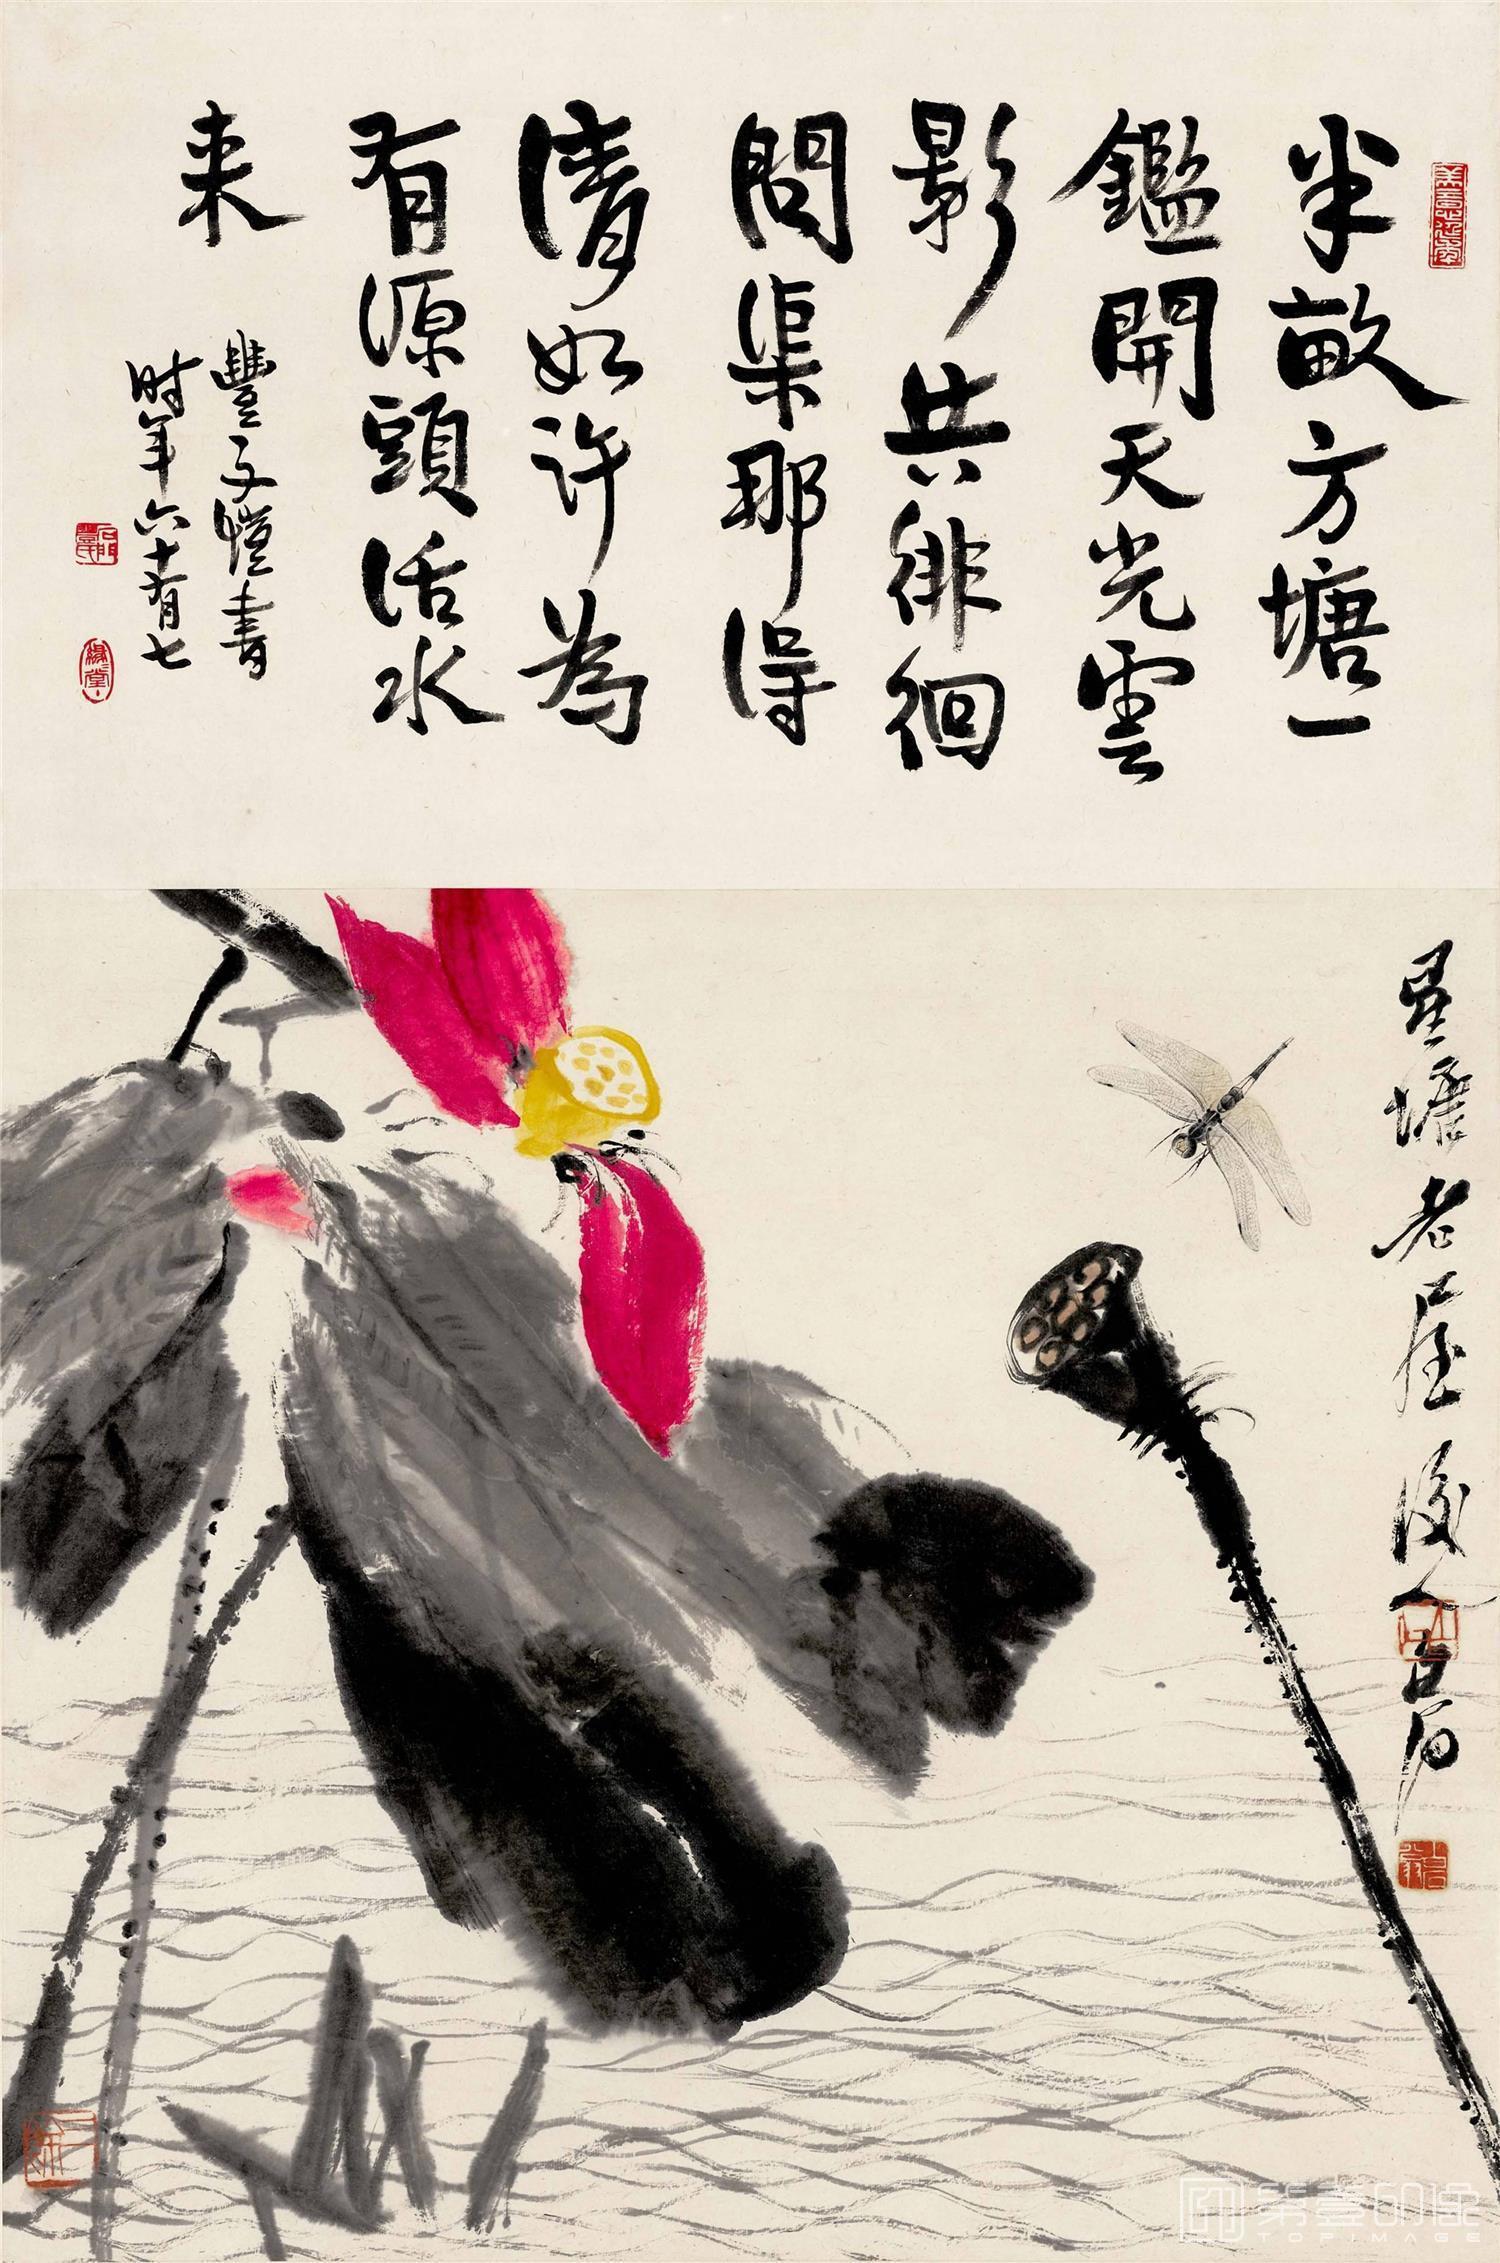 半畝方塘一
鑑開天光雲
影共徘徊
問渠那得
清如許為
有源頭活水
来
豐子愷書
时年六十有七
星塘老屋後人白石
第壹印像
TOPIMAGE